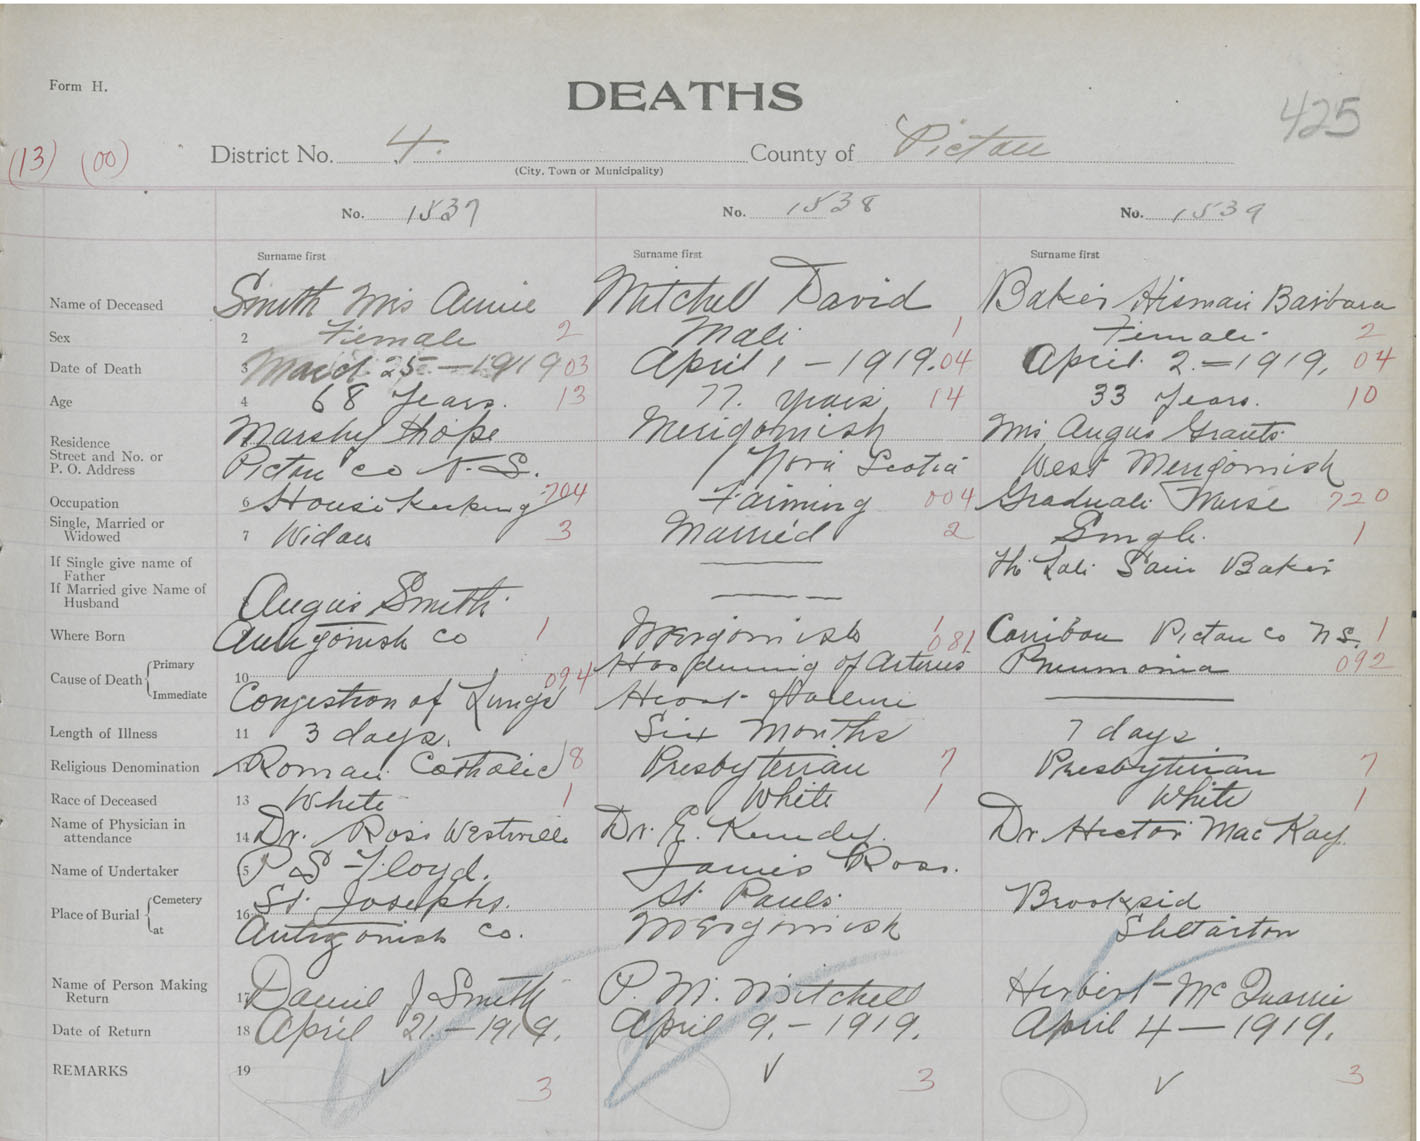 Form H.
DEATHS
425
(13) (00)
District No. 4. County of Pictou
(City, Town or Municipality)
No. 1537 No. 1538 No. 1539
Surname first Surname first Surname first
Name of Deceased Smith Mrs Annie Mitchell David Baker Hisman Barbara
Sex 2 Female 2 Male 1 Female 2
Date of Death 3 March 25 - 1919 03 April 1 - 1919. 04 April 2. - 1919. 04
Age 4 68 Years. 13 77. years 14 33 Years. 10
Residence Marshy Hope Merigomish Mrs Angus Grants
Street and No. or
P. O. Address Pictou co N. S. Nova Scotia West Merigomish
Occupation 6 House Keeping 704 Farming 004 Graduate Nurse 720
Single, Married or
Widowed 7 Widow 3 Married 2 Single. 1
If Single give name of
Father The Late Sam Baker
If Married give Name of
Husband Angus Smith
Where Born Antigonish co 1 Merigomish 1 Carribou Pictou co N.S. 1
Cause of Death Primary 10 094 Hardening of Arteries 081 Pneumonia 092
Immediate Congestion of Lungs Heart Failure
Length of Illness 11 3 days. Six Months 7 days
Religious Denomination Roman Catholic 8 Presbyterian 7 Presbyterian 7
Race of Deceased 13 White 1 White 1 White 1
Name of Physician in
attendance 14 Dr. Ross Westville Dr. E. Kennedy. Dr Hector MacKay.
Name of Undertaker 15 P S Floyd. James Ross.
Place of Burial Cemetery 16 St. Josephs. St Pauls Brooksid
at Antigonish Co. Merigomish Stellarton
Name of Person Making
Return 17 Daniel J Smith P. M. Mitchell Herbert McQuarrie
Date of Return 18 April 21. - 1919. April 9. - 1919. April 4 - 1919.
REMARKS 19 3 3 3